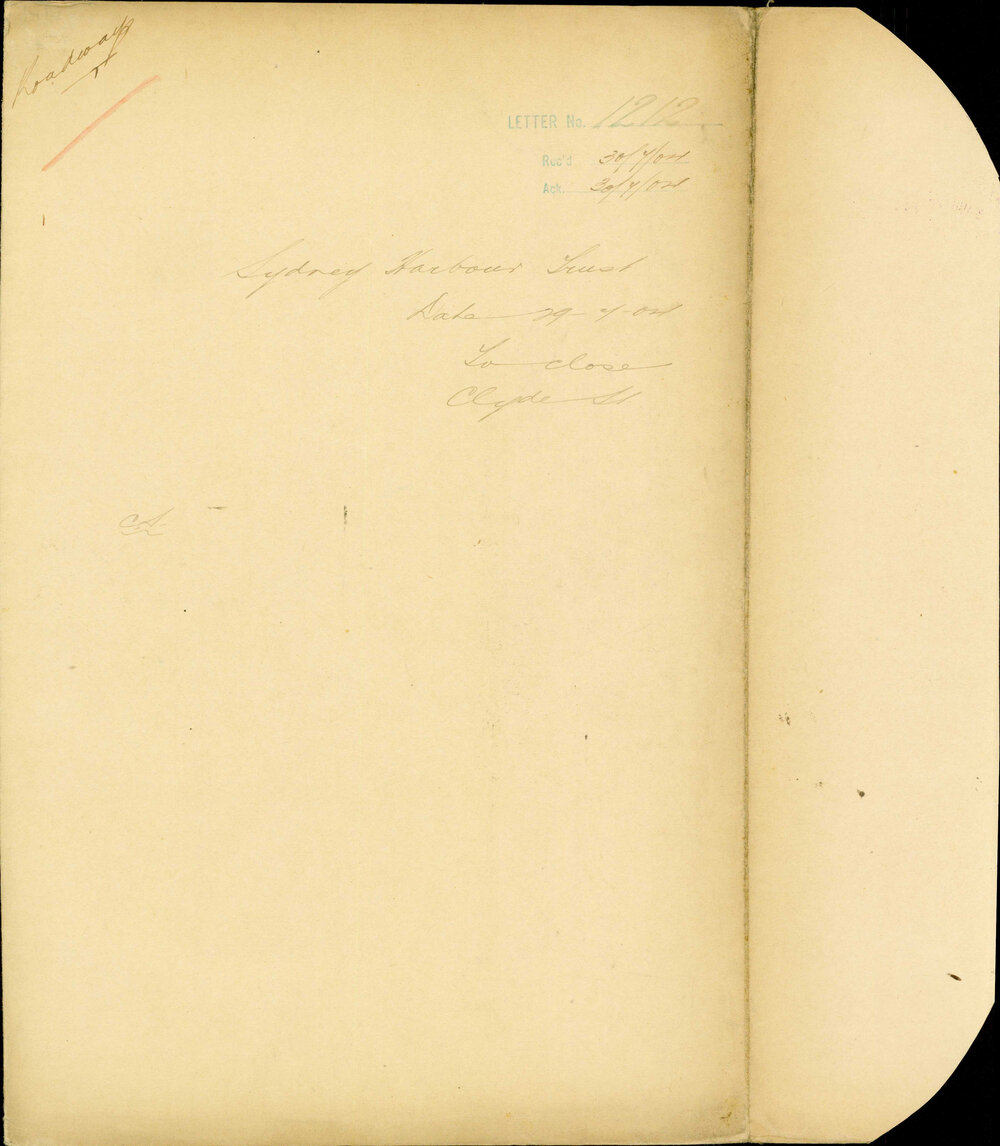 Roadways
LETTER No. 1212
Rec'd 30/7/04
Ack. 30/7/04
Sydney Harbour Trust
Date 29-7-04
To close
Clyde St